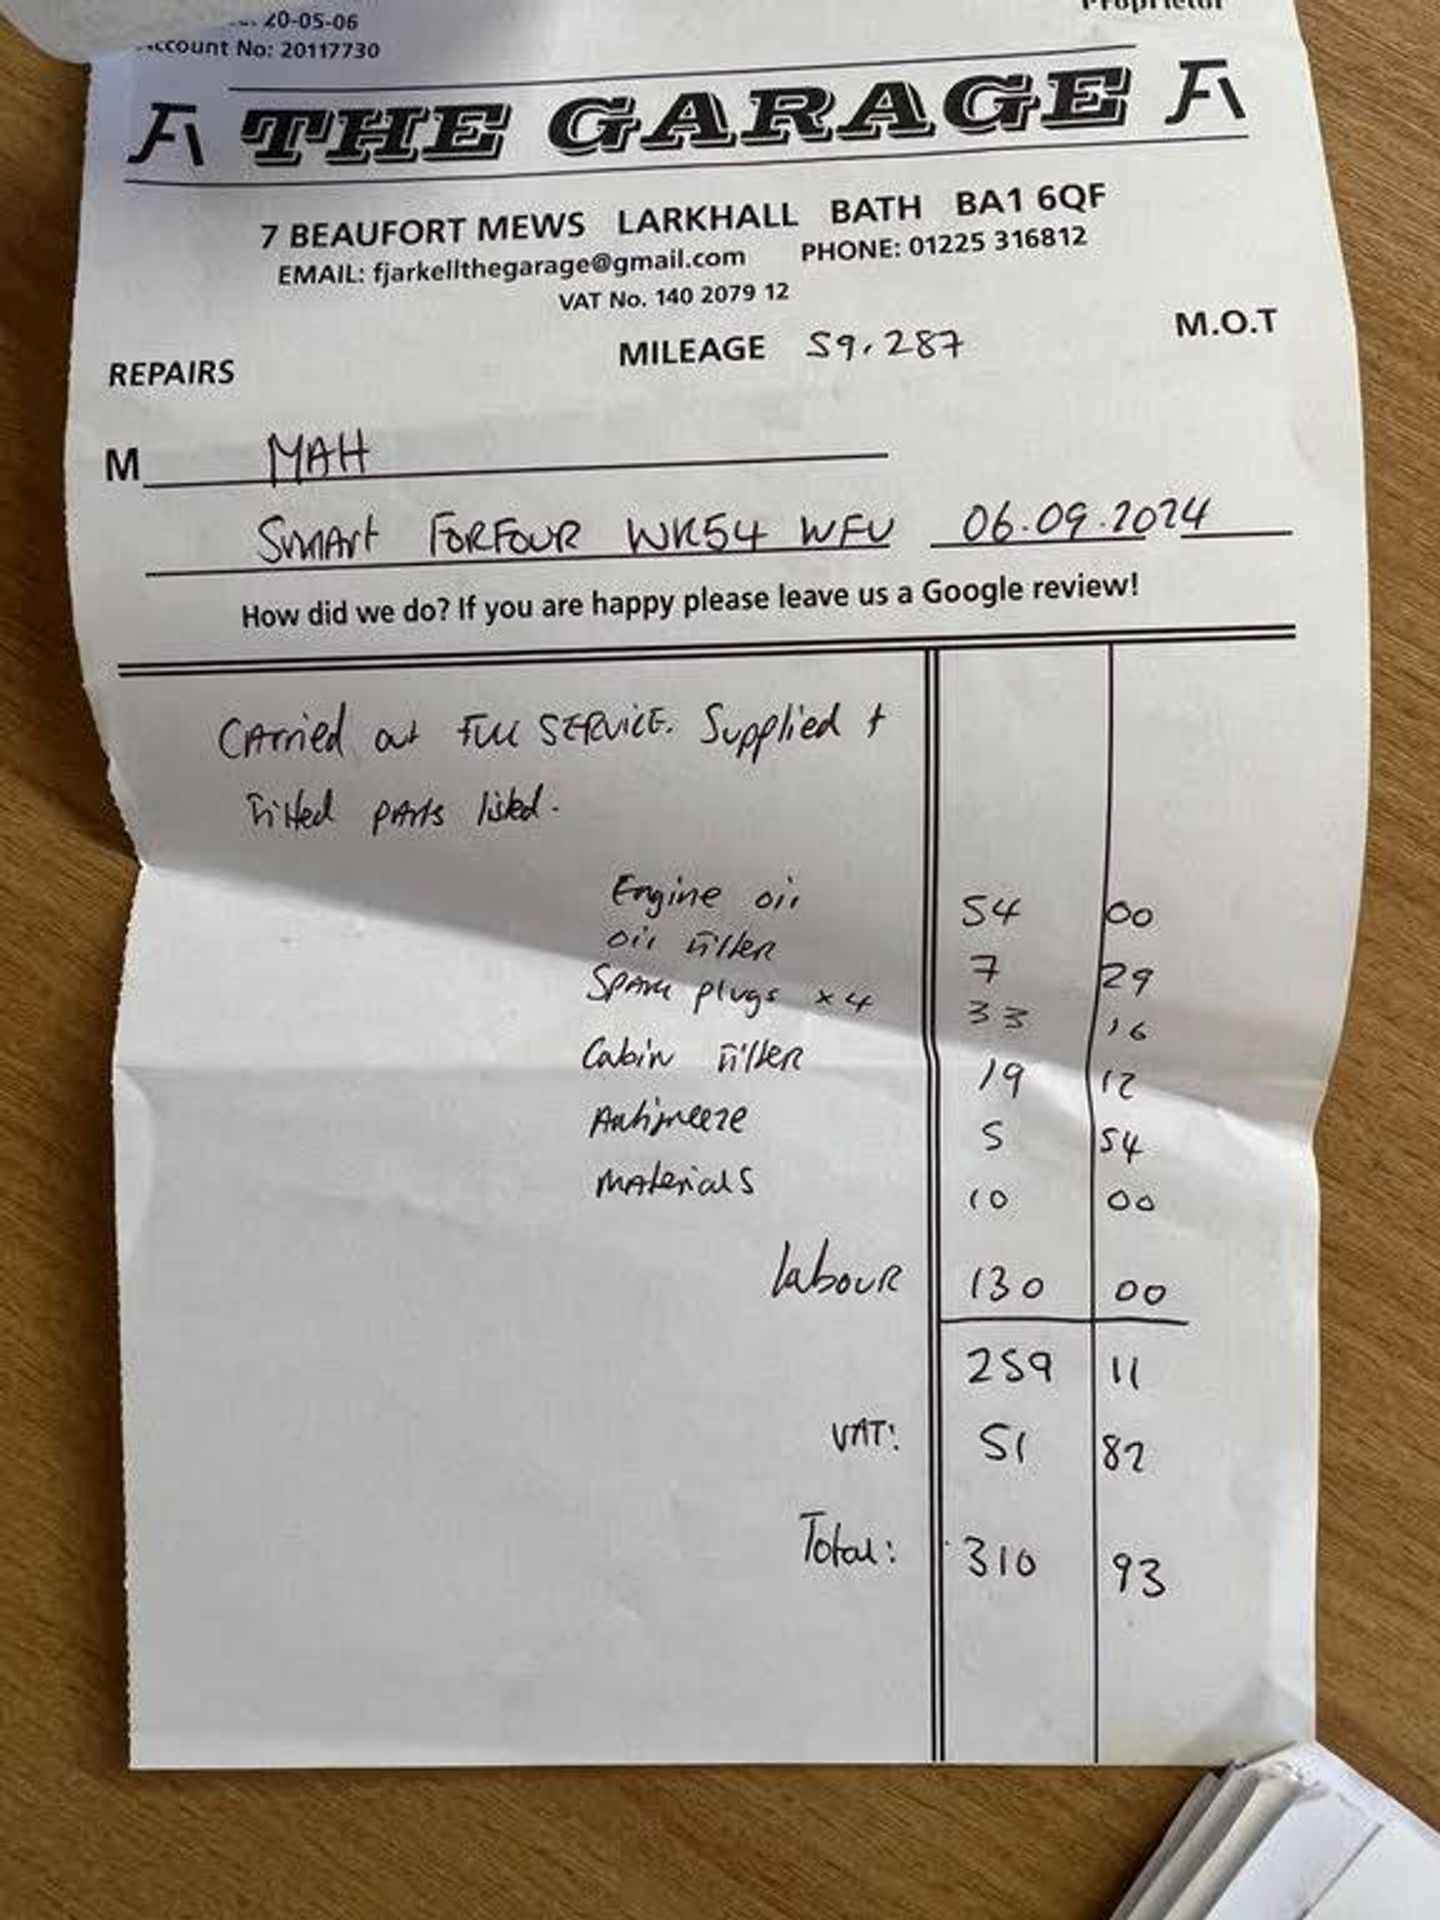 20-05-06
Account No: 20117730
Proprietor
THE GARAGE
7 BEAUFORT MEWS LARKHALL BATH BA1 6QF
EMAIL: fjarkellthegarage@gmail.com PHONE: 01225 316812
VAT No. 140 2079 12
REPAIRS MILEAGE 59,287 M.O.T
M MAH
Smart FORFOUR WK54 WFU 06.09.2024
How did we do? If you are happy please leave us a Google review!
Carried out FULL SERVICE. Supplied +
Fitted parts listed.
Engine oil 54 00
Oil Filter 7 29
Spark plugs x4 33 16
Cabin Filter 19 12
Antifreeze 5 54
Materials 10 00
Labour 130 00
259 11
VAT: 51 82
Total: 310 93